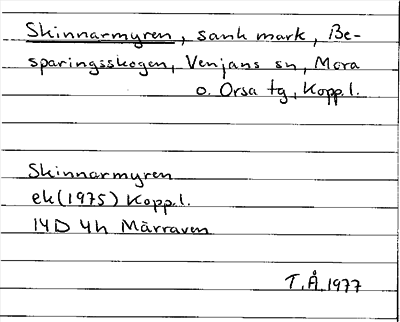 Skinnarmyren, sank mark, Be-
sparingsskogen, Venjans sn, Mora
o. Orsa tg, Kopp.l.
Skinnarmyren
ek (1975) Kopp.l.
14D 4h Märraven
T.Å.1977